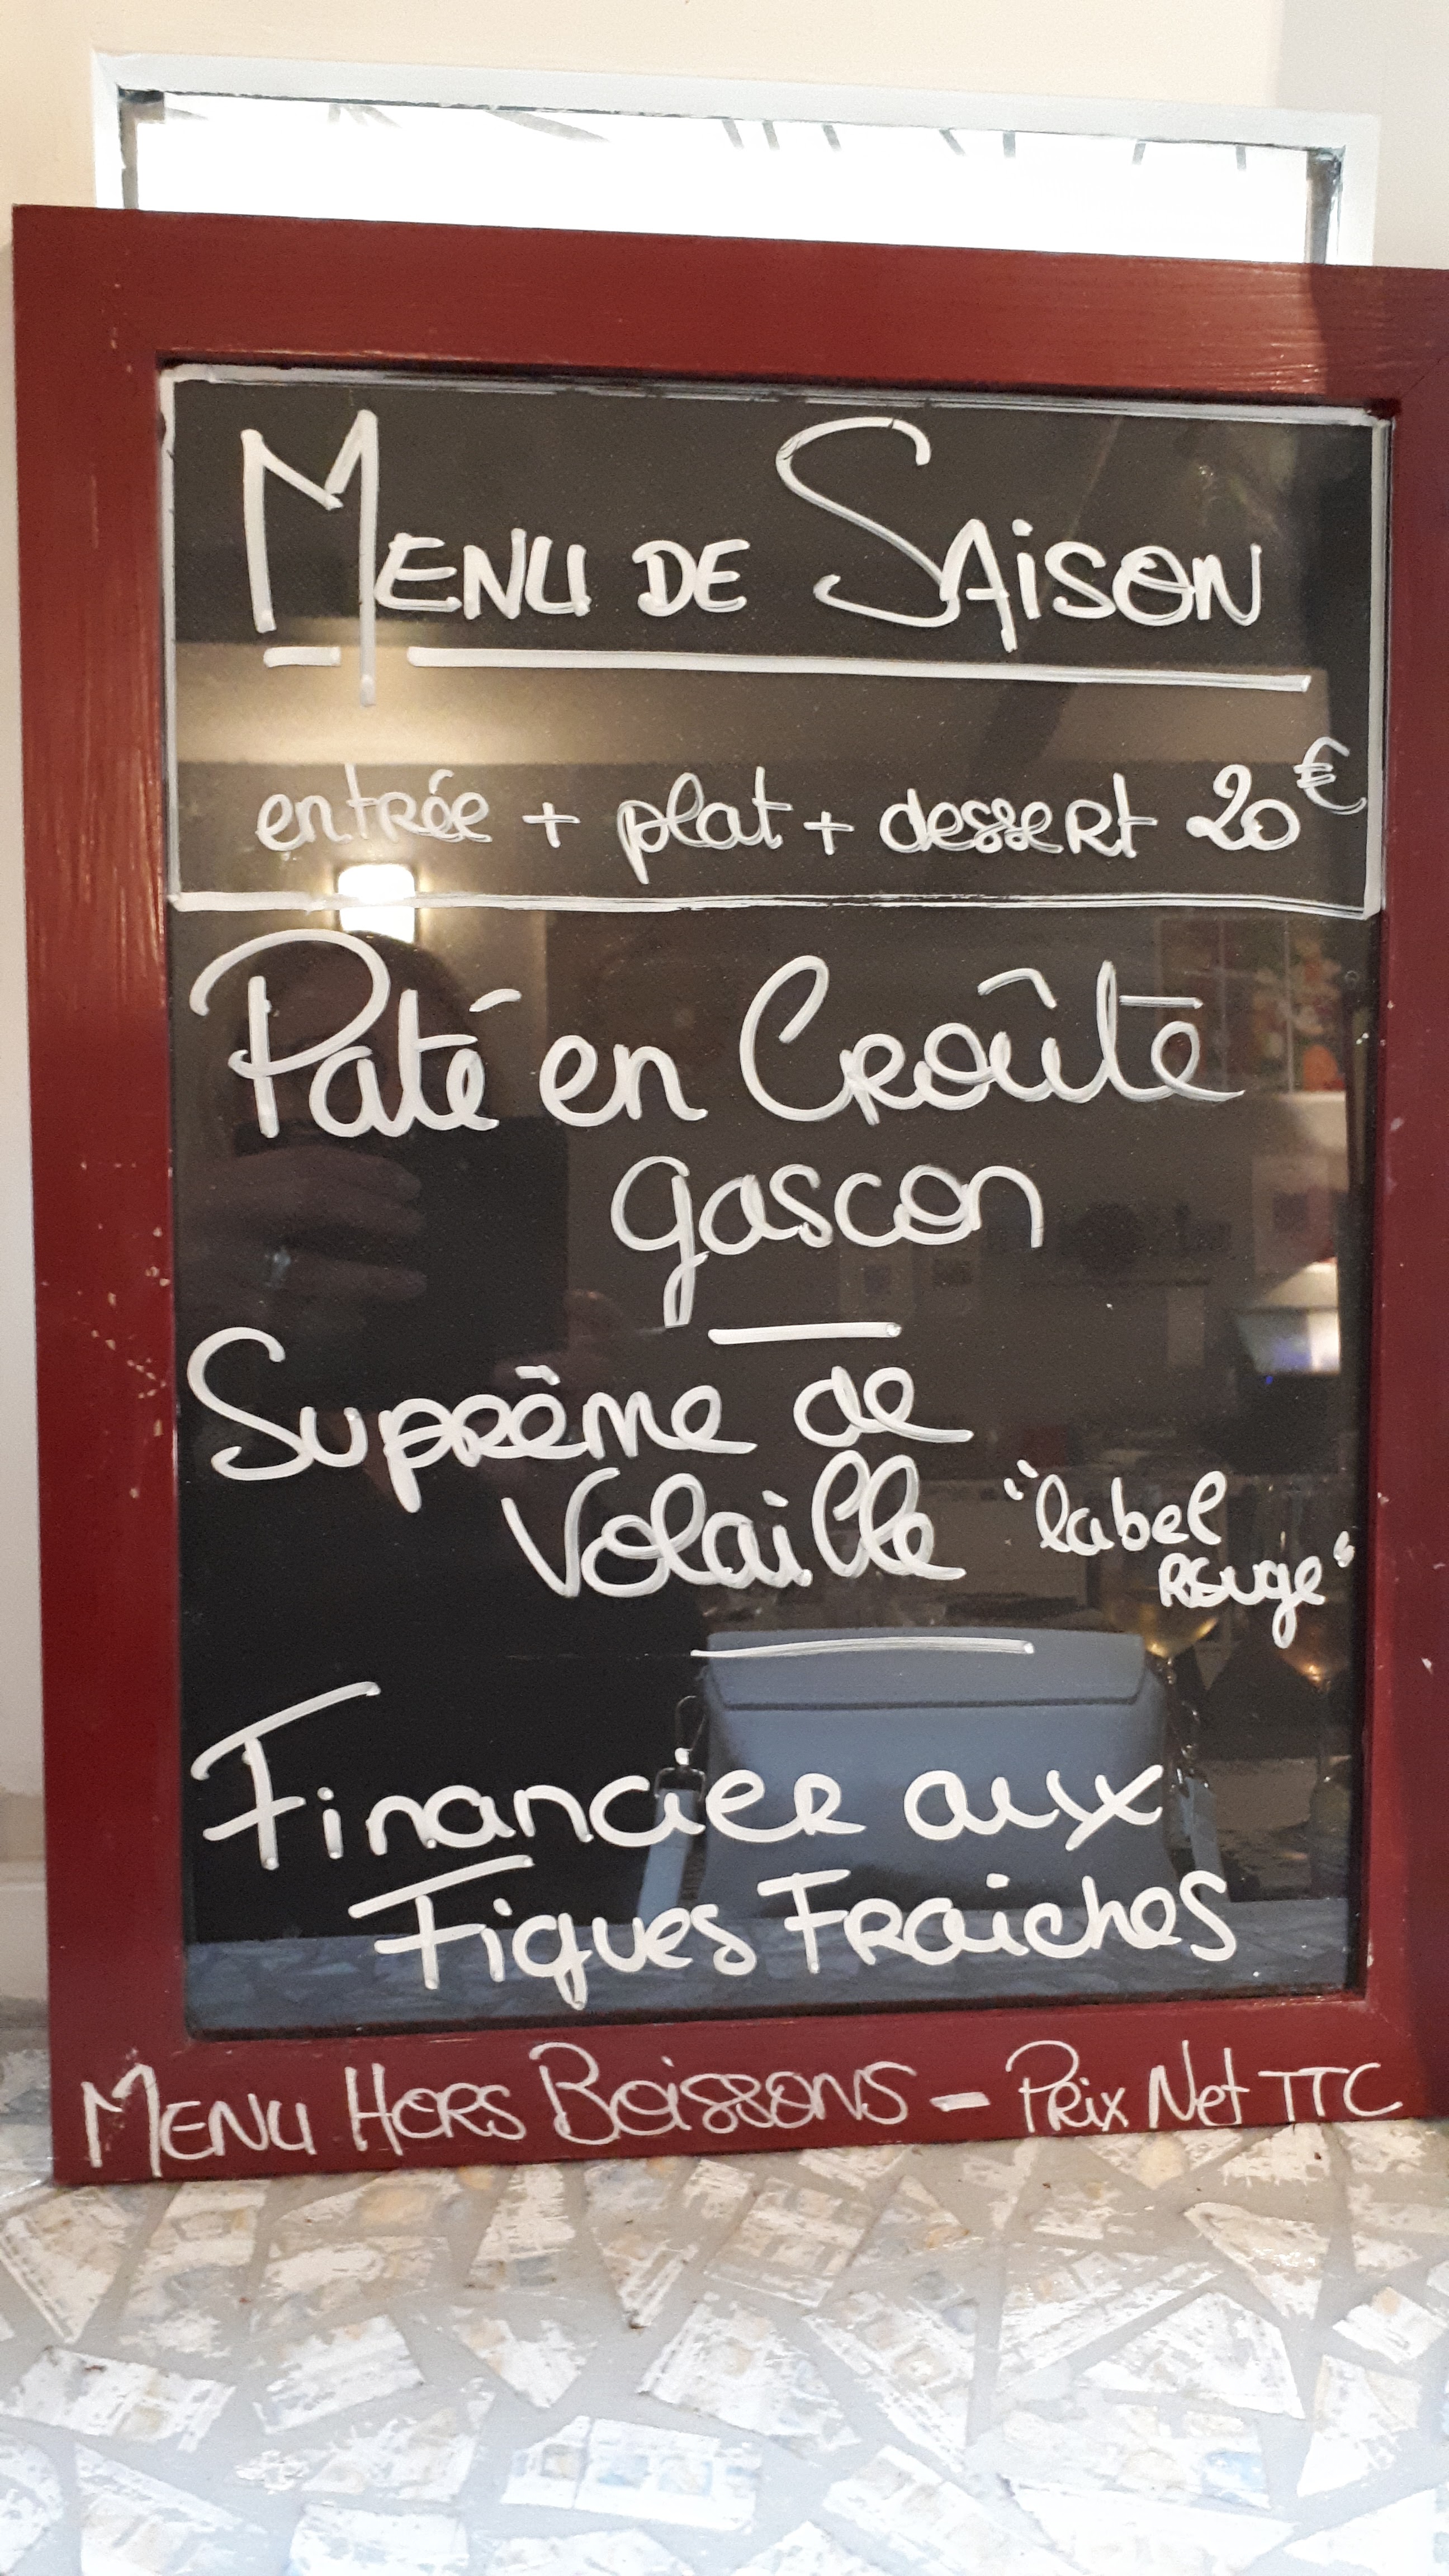 MENU DE SAISON
entrée + plat + dessert 20€
Paté en Croûte
gascon
Suprême de
Volaille "label
Rouge"
Financier aux
Figues Fraiches
MENU HORS BOISSONS - Prix Net TTC